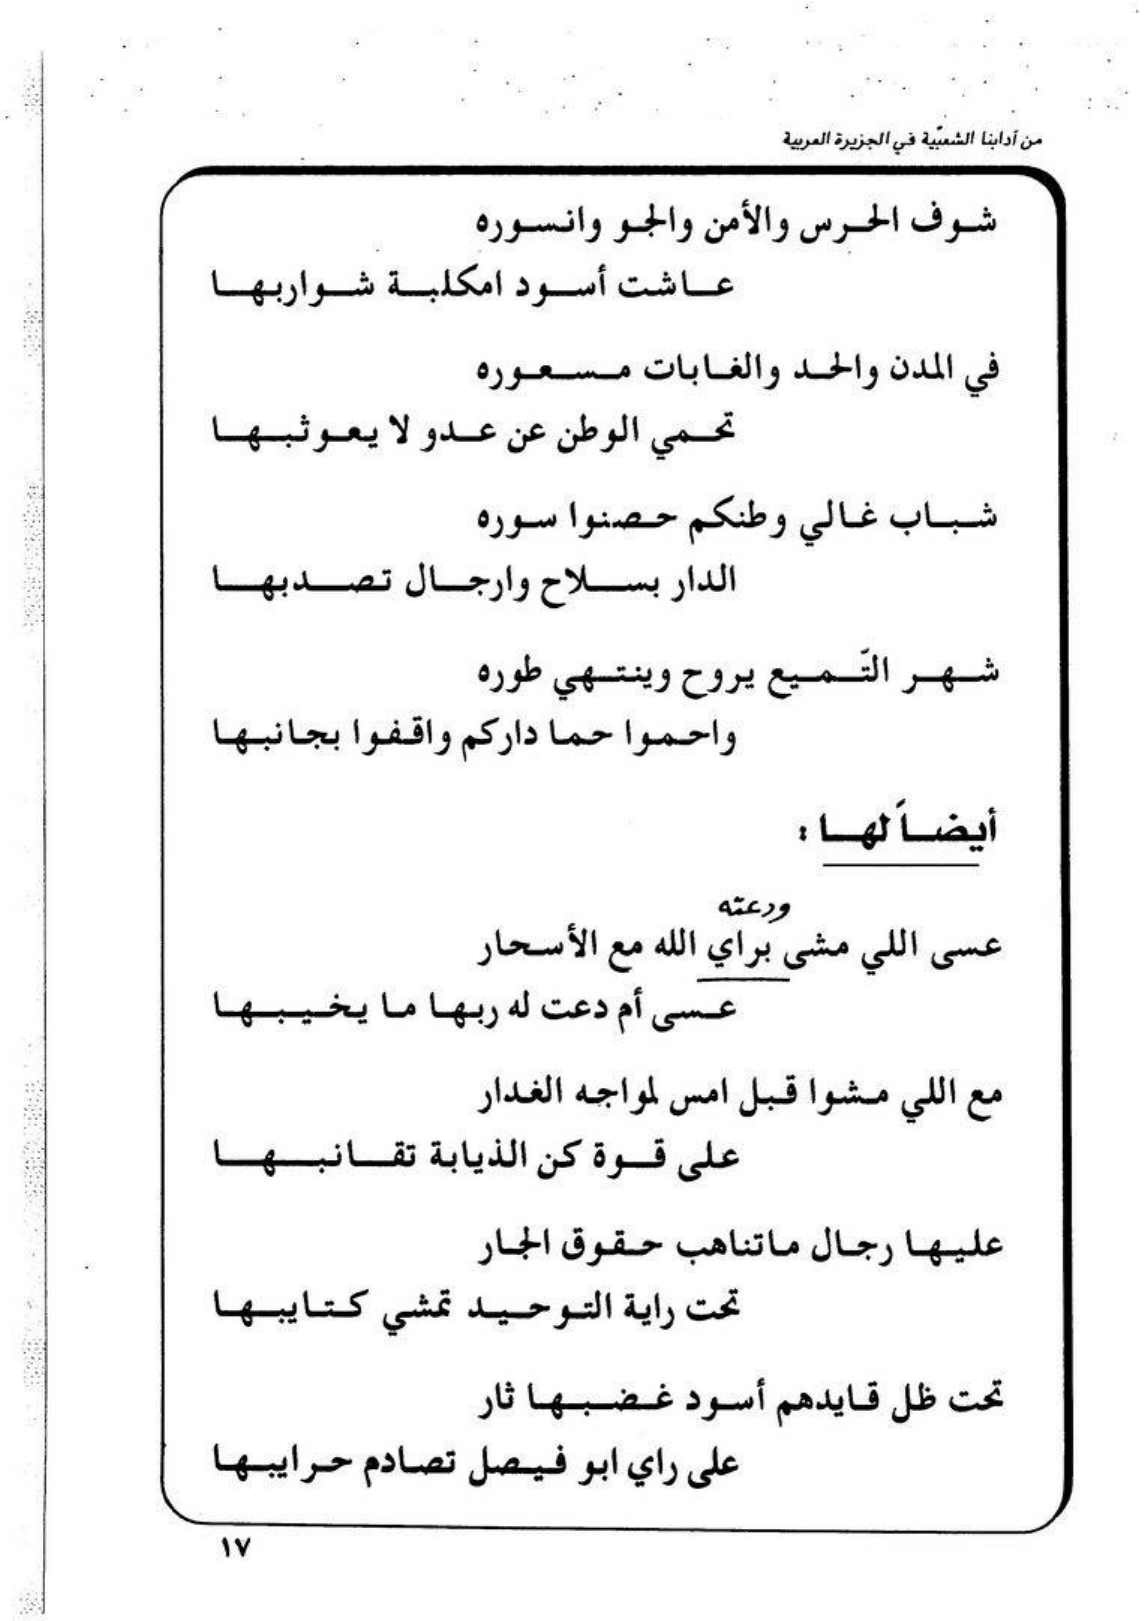 من آدابنا الشعبّية في الجزيرة العربية
شوف الحرس والأمن والجو وانسوره
عاشت أسود امكلبة شواربها
في المدن والحد والغابات مسعوره
تحمي الوطن عن عدو لا يعوثبها
شباب غالي وطنكم حصنوا سوره
الدار بسلاح وارجال تصدبها
شهر التّميع يروح وينتهي طوره
واحموا حما داركم واقفوا بجانبها
أيضاً لها :
ودعته
عسى اللي مشى براي الله مع الأسحار
عسى أم دعت له ربها ما يخيبها
مع اللي مشوا قبل امس لمواجه الغدار
على قوة كن الذيابة تقانبها
عليها رجال ماتناهب حقوق الجار
تحت راية التوحيد تمشي كتايبها
تحت ظل قايدهم أسود غضبها ثار
على راي ابو فيصل تصادم حرايبها
١٧